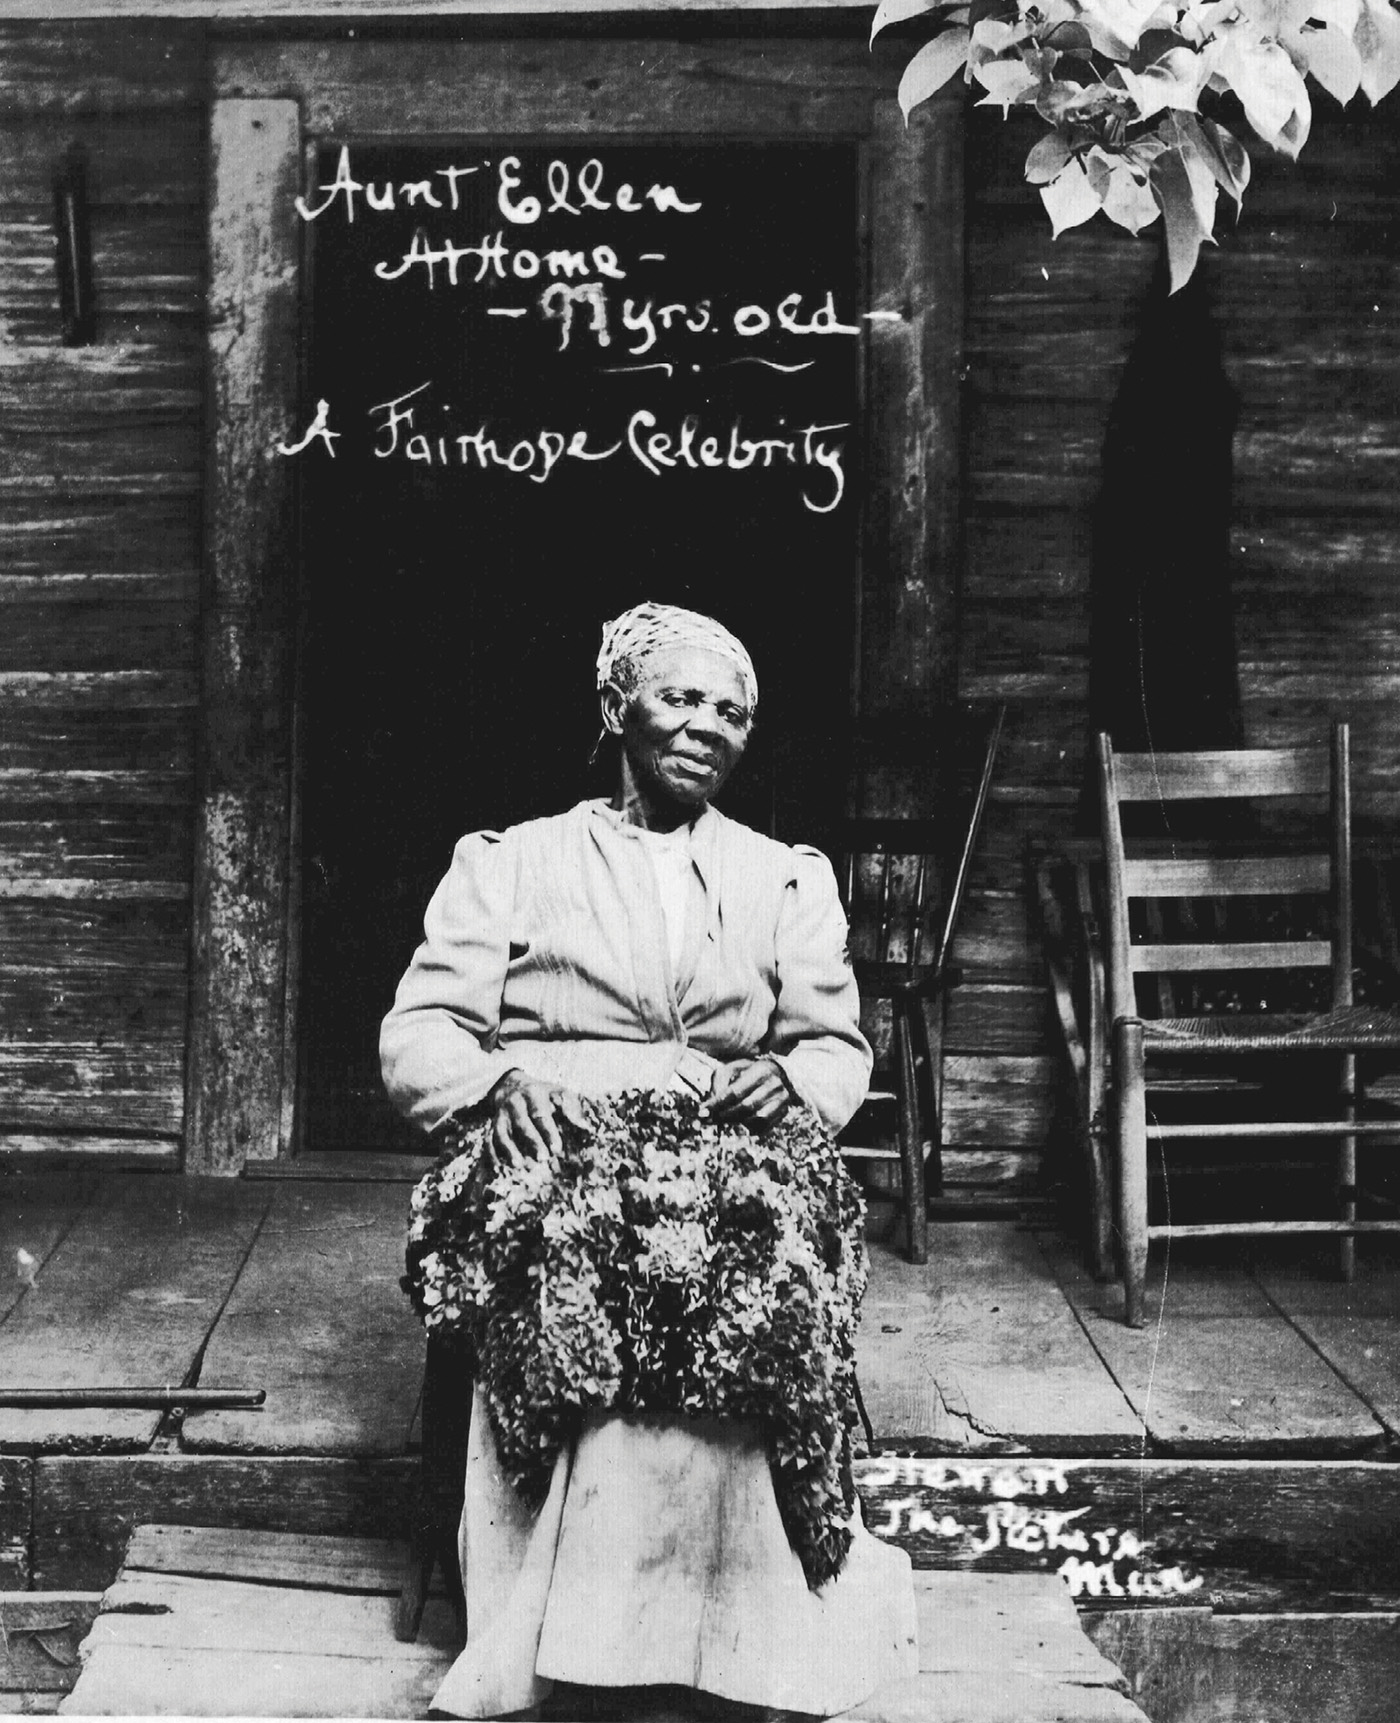 Aunt Ellen
At Home -
- 99 yrs. old -
A Fairhope Celebrity
Stewart
The Picture
Man